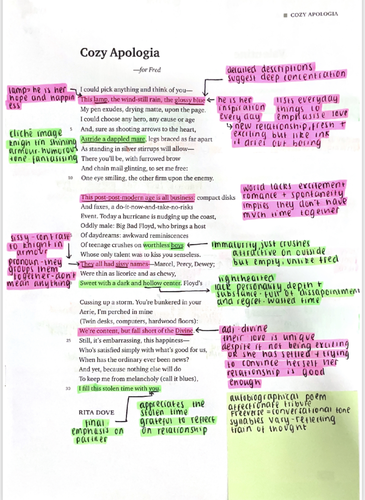 COZY APOLOGIA
Cozy Apologia
—for Fred
I could pick anything and think of you—
This lamp, the wind-still rain, the glossy blue
My pen exudes, drying matte, upon the page.
I could choose any hero, any cause or age
And, sure as shooting arrows to the heart,
Astride a dappled mare, legs braced as far apart
As standing in silver stirrups will allow—
There you'll be, with furrowed brow
And chain mail glinting, to set me free:
One eye smiling, the other firm upon the enemy.
This post-post-modern age is all business: compact disks
And faxes, a do-it-now-and-take-no-risks
Event. Today a hurricane is nudging up the coast,
Oddly male: Big Bad Floyd, who brings a host
Of daydreams: awkward reminiscences
Of teenage crushes on worthless boys
Whose only talent was to kiss you senseless.
They all had sissy names—Marcel, Percy, Dewey;
Were thin as licorice and as chewy,
Sweet with a dark and hollow center. Floyd's
Cussing up a storm. You're bunkered in your
Aerie, I'm perched in mine
(Twin desks, computers, hardwood floors):
We're content, but fall short of the Divine.
Still, it's embarrassing, this happiness—
Who's satisfied simply with what's good for us,
When has the ordinary ever been news?
And yet, because nothing else will do
To keep me from melancholy (call it blues),
I fill this stolen time with you.
RITA DOVE
detailed descriptions
suggest deep concentration
lamp: he is her
hope and happin
ess
he is her
inspiration
every day
lists everyday
things to
emphasise love
new relationship, fresh +
exciting but like ink
it dries out boring
cliché image
knight in shining
armour: humorous
tone fantasising
world lacks excitement
romance + spontaneity
implies they don't have
much time together
immaturity, just crushes
attractive on outside
but empty. unlike fred
to knight in
armour
pronoun they
groups them
together - don't
mean anything
lighthearted
lack personality depth +
substance - full of dissapointment
and regret wasted time
adj divine
their love is unique
despite it not being exciting
or she has settled + trying
to convince herself her
relationship is good
enough
appreciates the
stolen time
grateful to reflect
on relationship
final
emphasis on
partner
autobiographical poem
affectionate tribute
freeverse = conversational tone
syllables vary - reflecting
train of thought